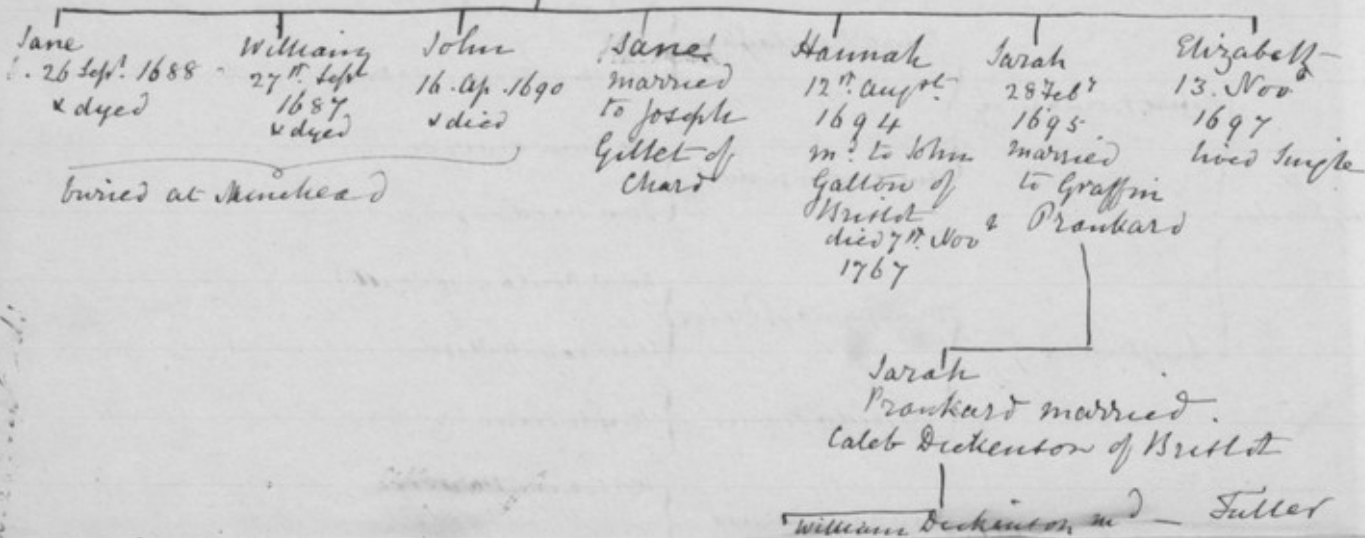 Jane
26 Sept. 1688
& dyed
William
27th Sept
1687
& dyed
John
16. Ap. 1690
& died
buried at Minehead
Jane
married
to Joseph
Gillet of
Chard
Hannah
12th Augst.
1694
md. to John
Galton of
Bristol
died 7th Nov
1767
Sarah
28 Feby
1695
married
to Graffin
Prankard
Elizabeth
13. Nov
1697
lived Single
Sarah
Prankard married.
Caleb Dickenson of Bristol
William Dickinson md — Fuller